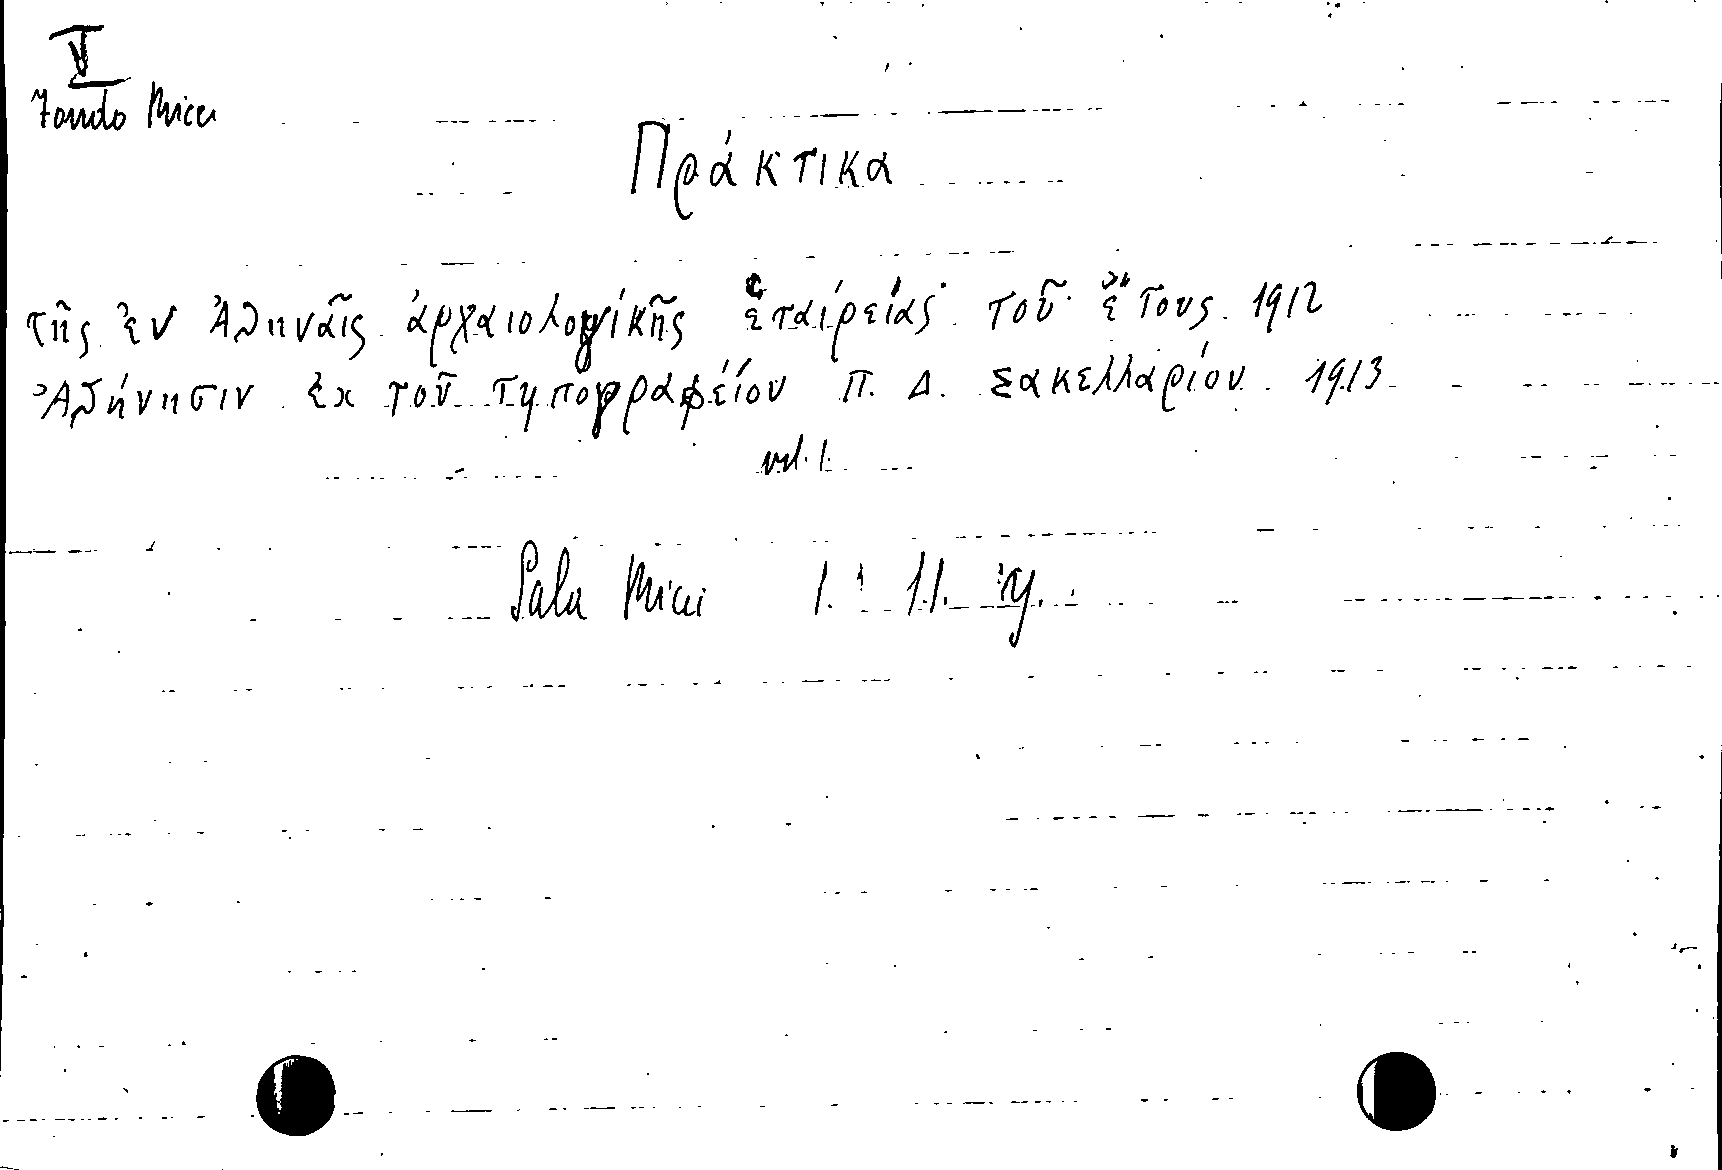 V
Fondo Micci
Πράκτικα
τῆς ἐν Ἀθηναῖς ἀρχαιολογίκῆς ἑταίρείας τοῦ ἔτους 1912
Ἀθήνησιν ἐκ τοῦ τυπογραφείου Π. Δ. Σακελλαρίου 1913
vol. 1.
Sala Micci 1. 11.